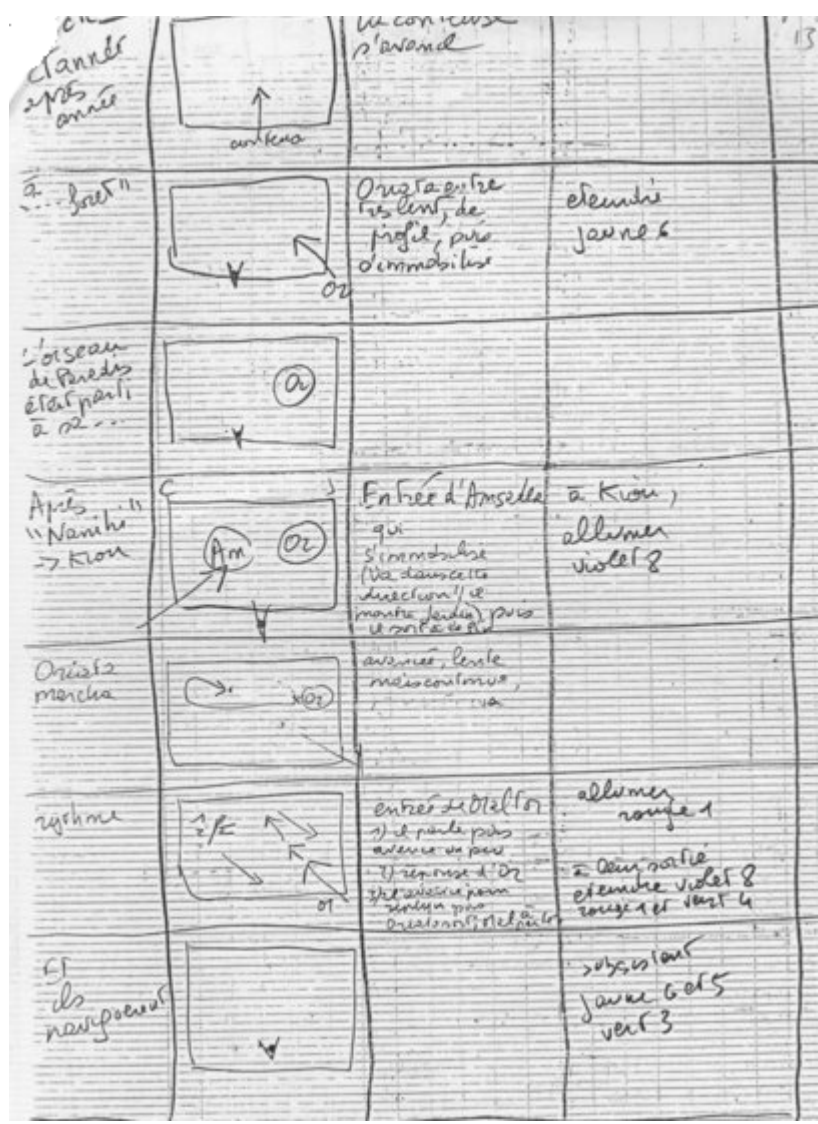 13
d'année
après
année
La conteuse
s'avance
conteuse
à
.... foret"
Or
Oriata entre
très lent, de
profil, puis
s'immobilise
eteindre
jaune 6
L'oiseau
de Paradis
était parti
à sa ...
Or
Après
"Namihi"
-> Kiou
Am
Or
Entrée d'Amsedla
qui
s'immobilise
(Va dans cette
direction" il
montre jardin), puis
il sort
à Kiou,
allumer
violet 8
Oriata
marcha
Or
avancée, lente
mais continue,
va
rythme
or
entrée de
1) il parle puis
avance un peu
2) réponse d'Or
allumer
rouge 1
à leur sortie
eteindre violet 8
rouge 1 et vert 4
Et
ils
naviguèrent
subsistent
jaune 6 et 5
vert 3